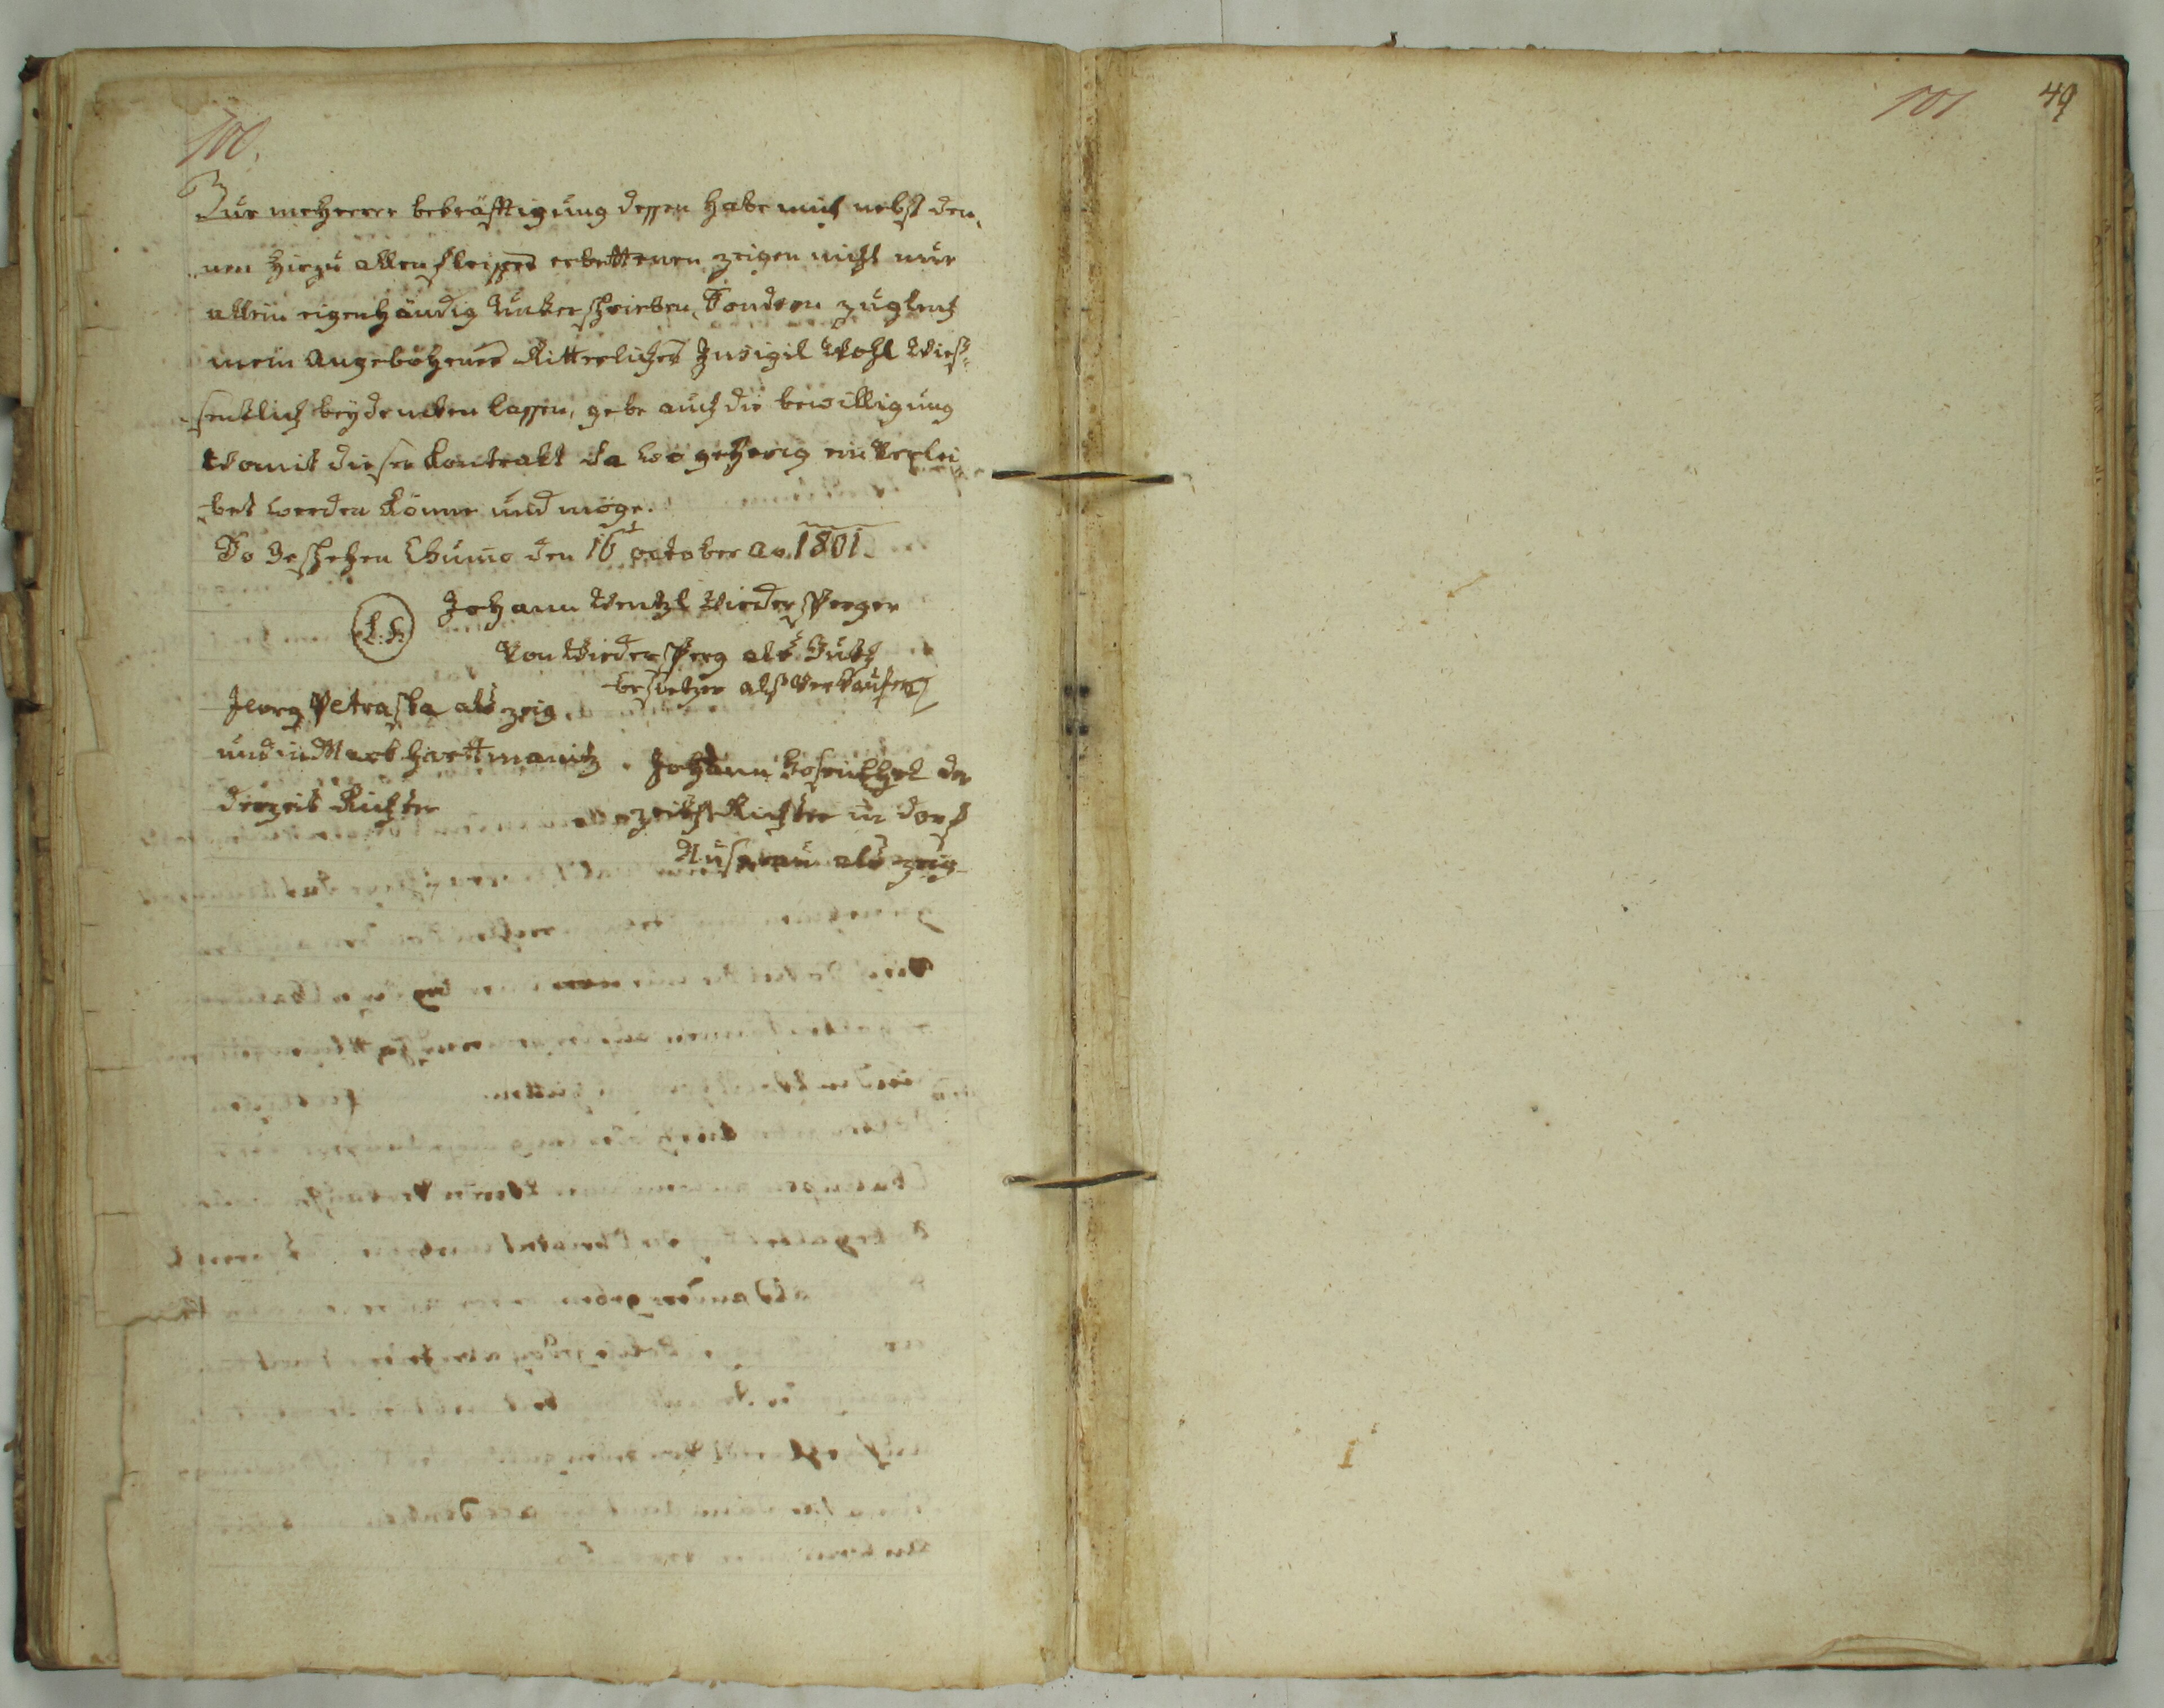 100.
Zur mehrerer bekräfftigung dessen habe mich nebst den„
„nen hiezu allen fleisses erbettenen zeigen nicht nur
allein eigenhändig Unterschrieben, Sondern zugleich
mein Angebohrenes Ritterliches Insigil Wohl Wiss„
„sentlich beydruken lassen, gebe auch die bewilligung
Womit dieser Contrakt da wo gehörig ein Verlei„
„bet werden könne und möge.
So Geschehen Chumo den 16t october ao. 1801.
L: S: Johann Wentzl Widersperger
Von Widersperg als Gutts
besietzer alß Verkaufer
Jeorg Petraschka als zeig
und in Mark Hartmanitz
derzeit Richter
Johann der
zeith Richter in dorf
als zeig
101
49